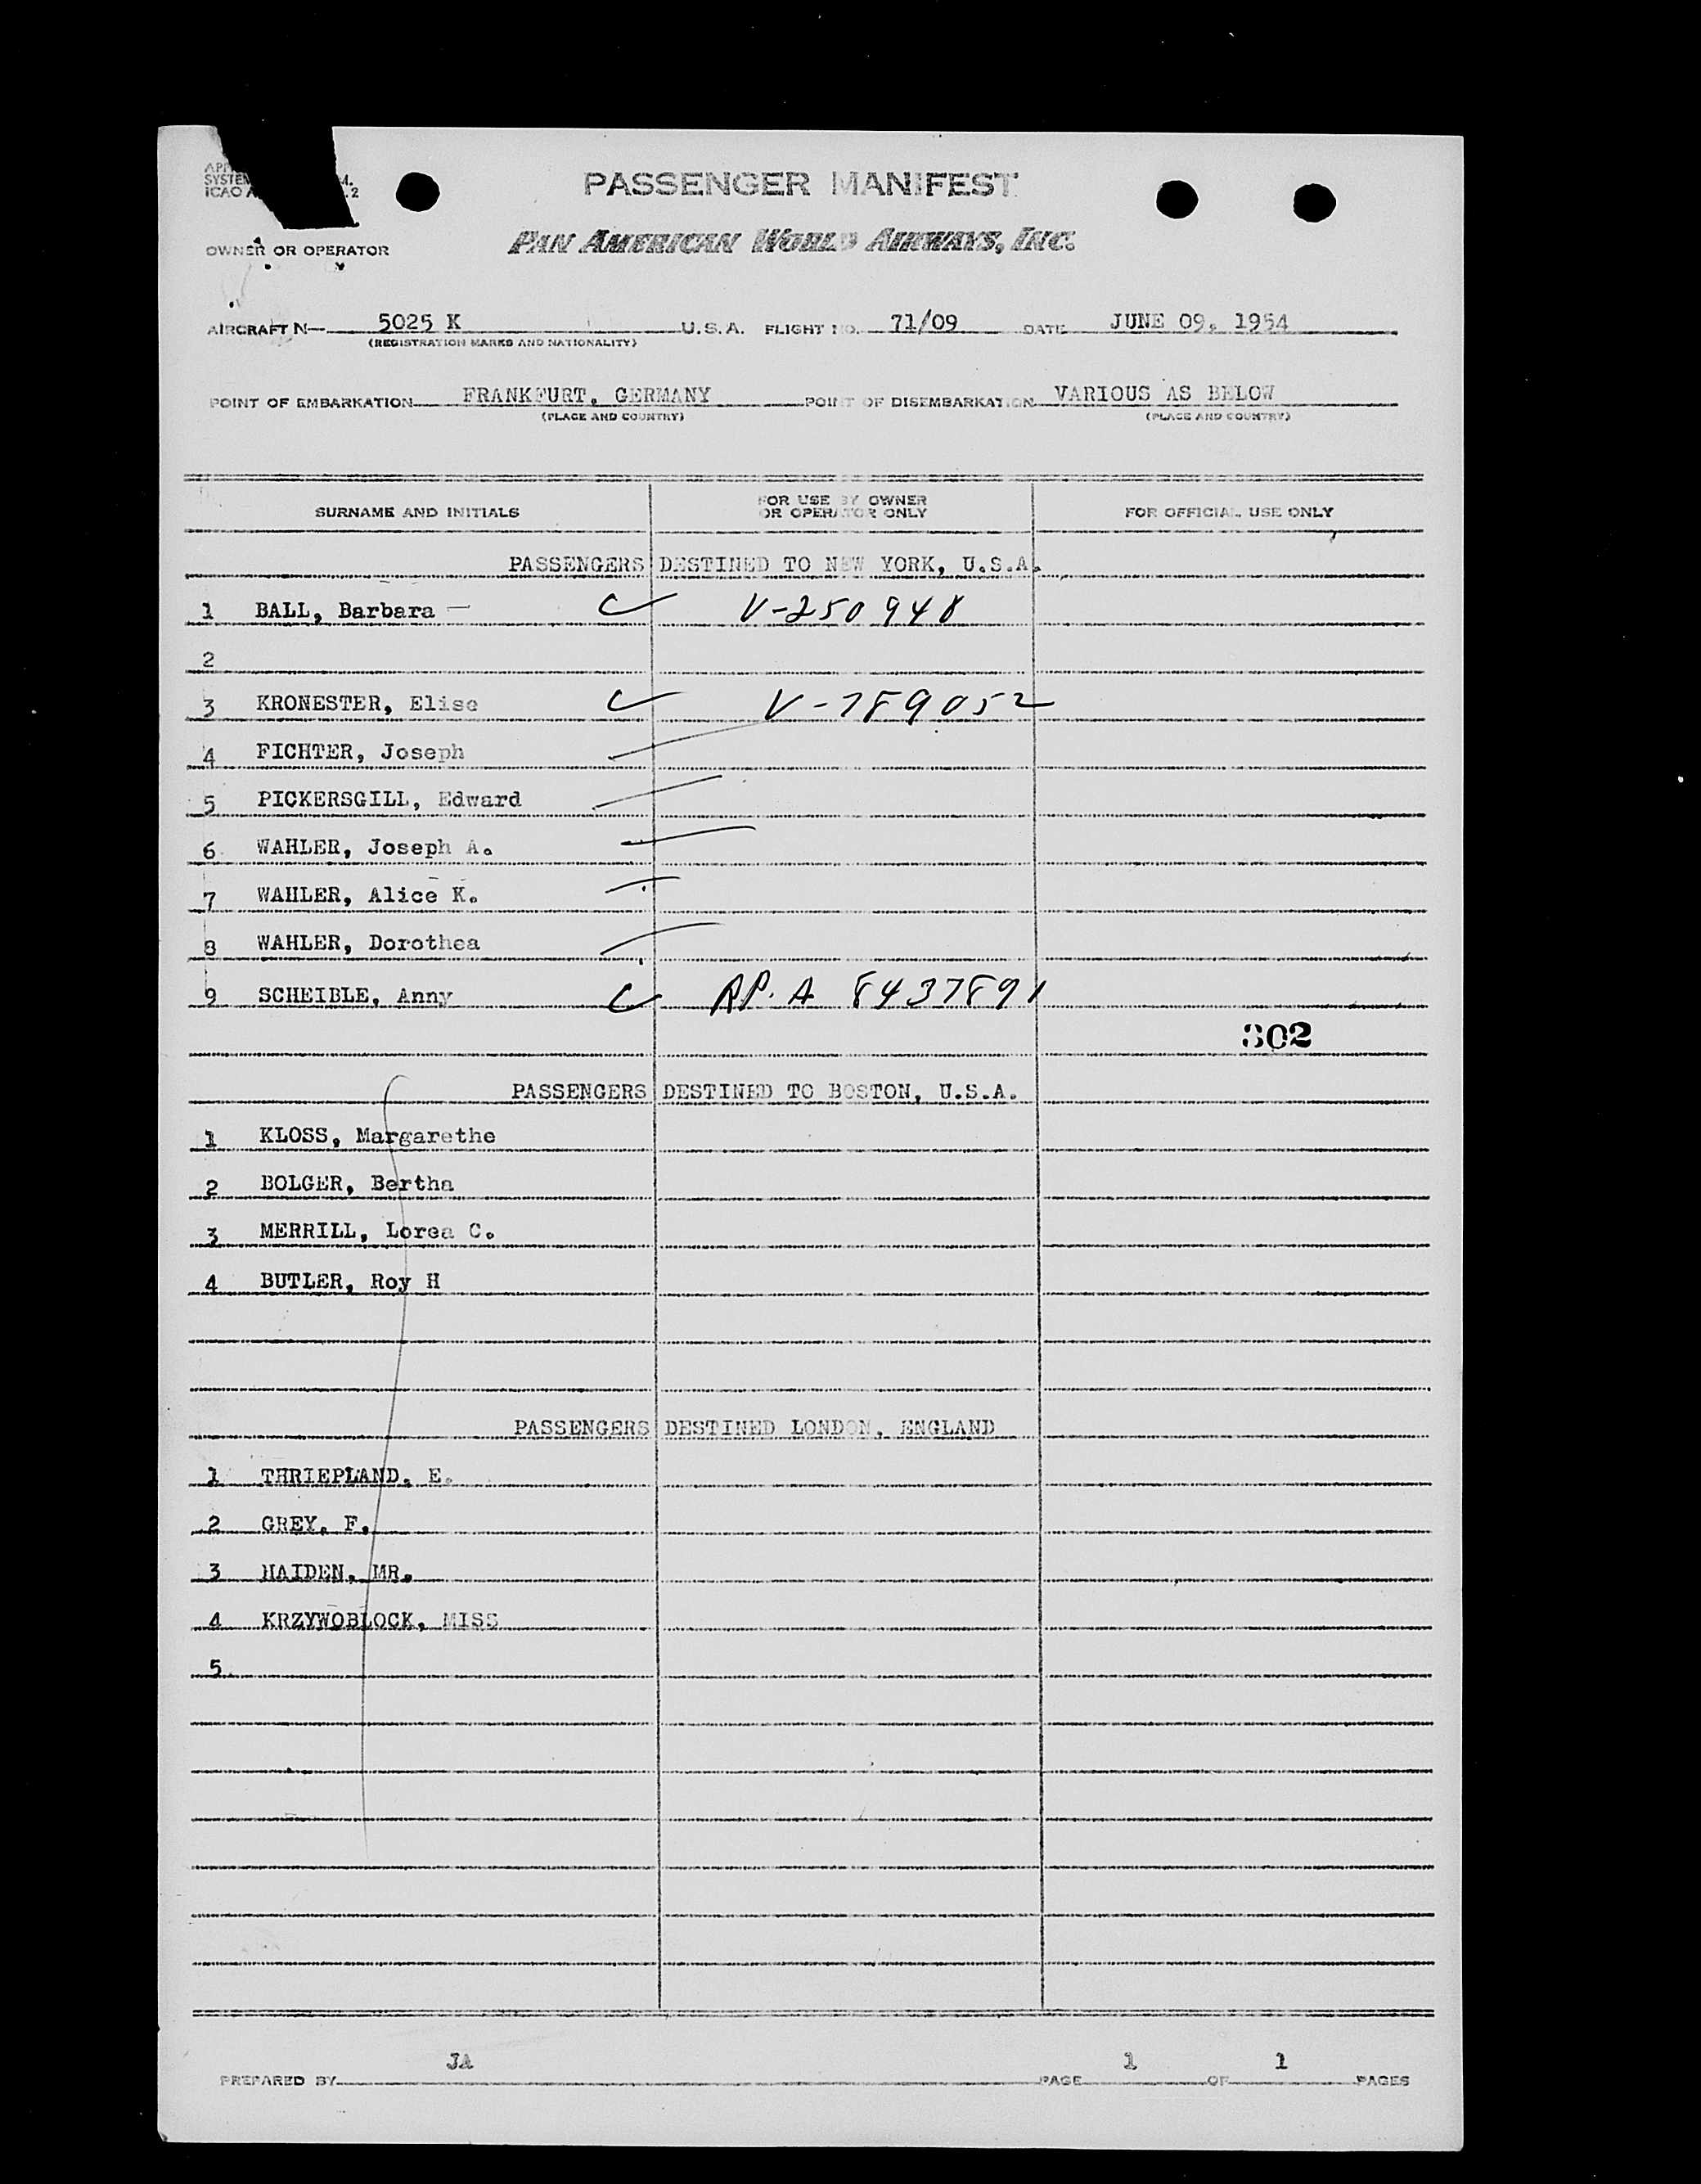 PASSENGER MANIFEST
PAN AMERICAN WORLD AIRWAYS, INC.
OWNER OR OPERATOR
AIRCRAFT N— 5025 K U.S.A. FLIGHT NO. 71/09 DATE JUNE 09, 1954
(REGISTRATION MARKS AND NATIONALITY)
POINT OF EMBARKATION FRANKFURT, GERMANY POINT OF DISEMBARKATION VARIOUS AS BELOW
(PLACE AND COUNTRY) (PLACE AND COUNTRY)
SURNAME AND INITIALS FOR USE BY OWNER OR OPERATOR ONLY FOR OFFICIAL USE ONLY
PASSENGERS DESTINED TO NEW YORK, U.S.A.
1 BALL, Barbara — V-250948
2
3 KRONESTER, Elise V-789052
4 FICHTER, Joseph
5 PICKERSGILL, Edward
6 WAHLER, Joseph A.
7 WAHLER, Alice K.
8 WAHLER, Dorothea
9 SCHEIBLE, Anny RP. A 8437891
302
PASSENGERS DESTINED TO BOSTON, U.S.A.
1 KLOSS, Margarethe
2 BOLGER, Bertha
3 MERRILL, Lorea C.
4 BUTLER, Roy H
PASSENGERS DESTINED LONDON, ENGLAND
1 THRIEPLAND, E.
2 GREY, F.
3 HAIDEN, MR.
4 KRZYWOBLOCK, MISS
5
JA 1 1
PREPARED BY PAGE OF PAGES